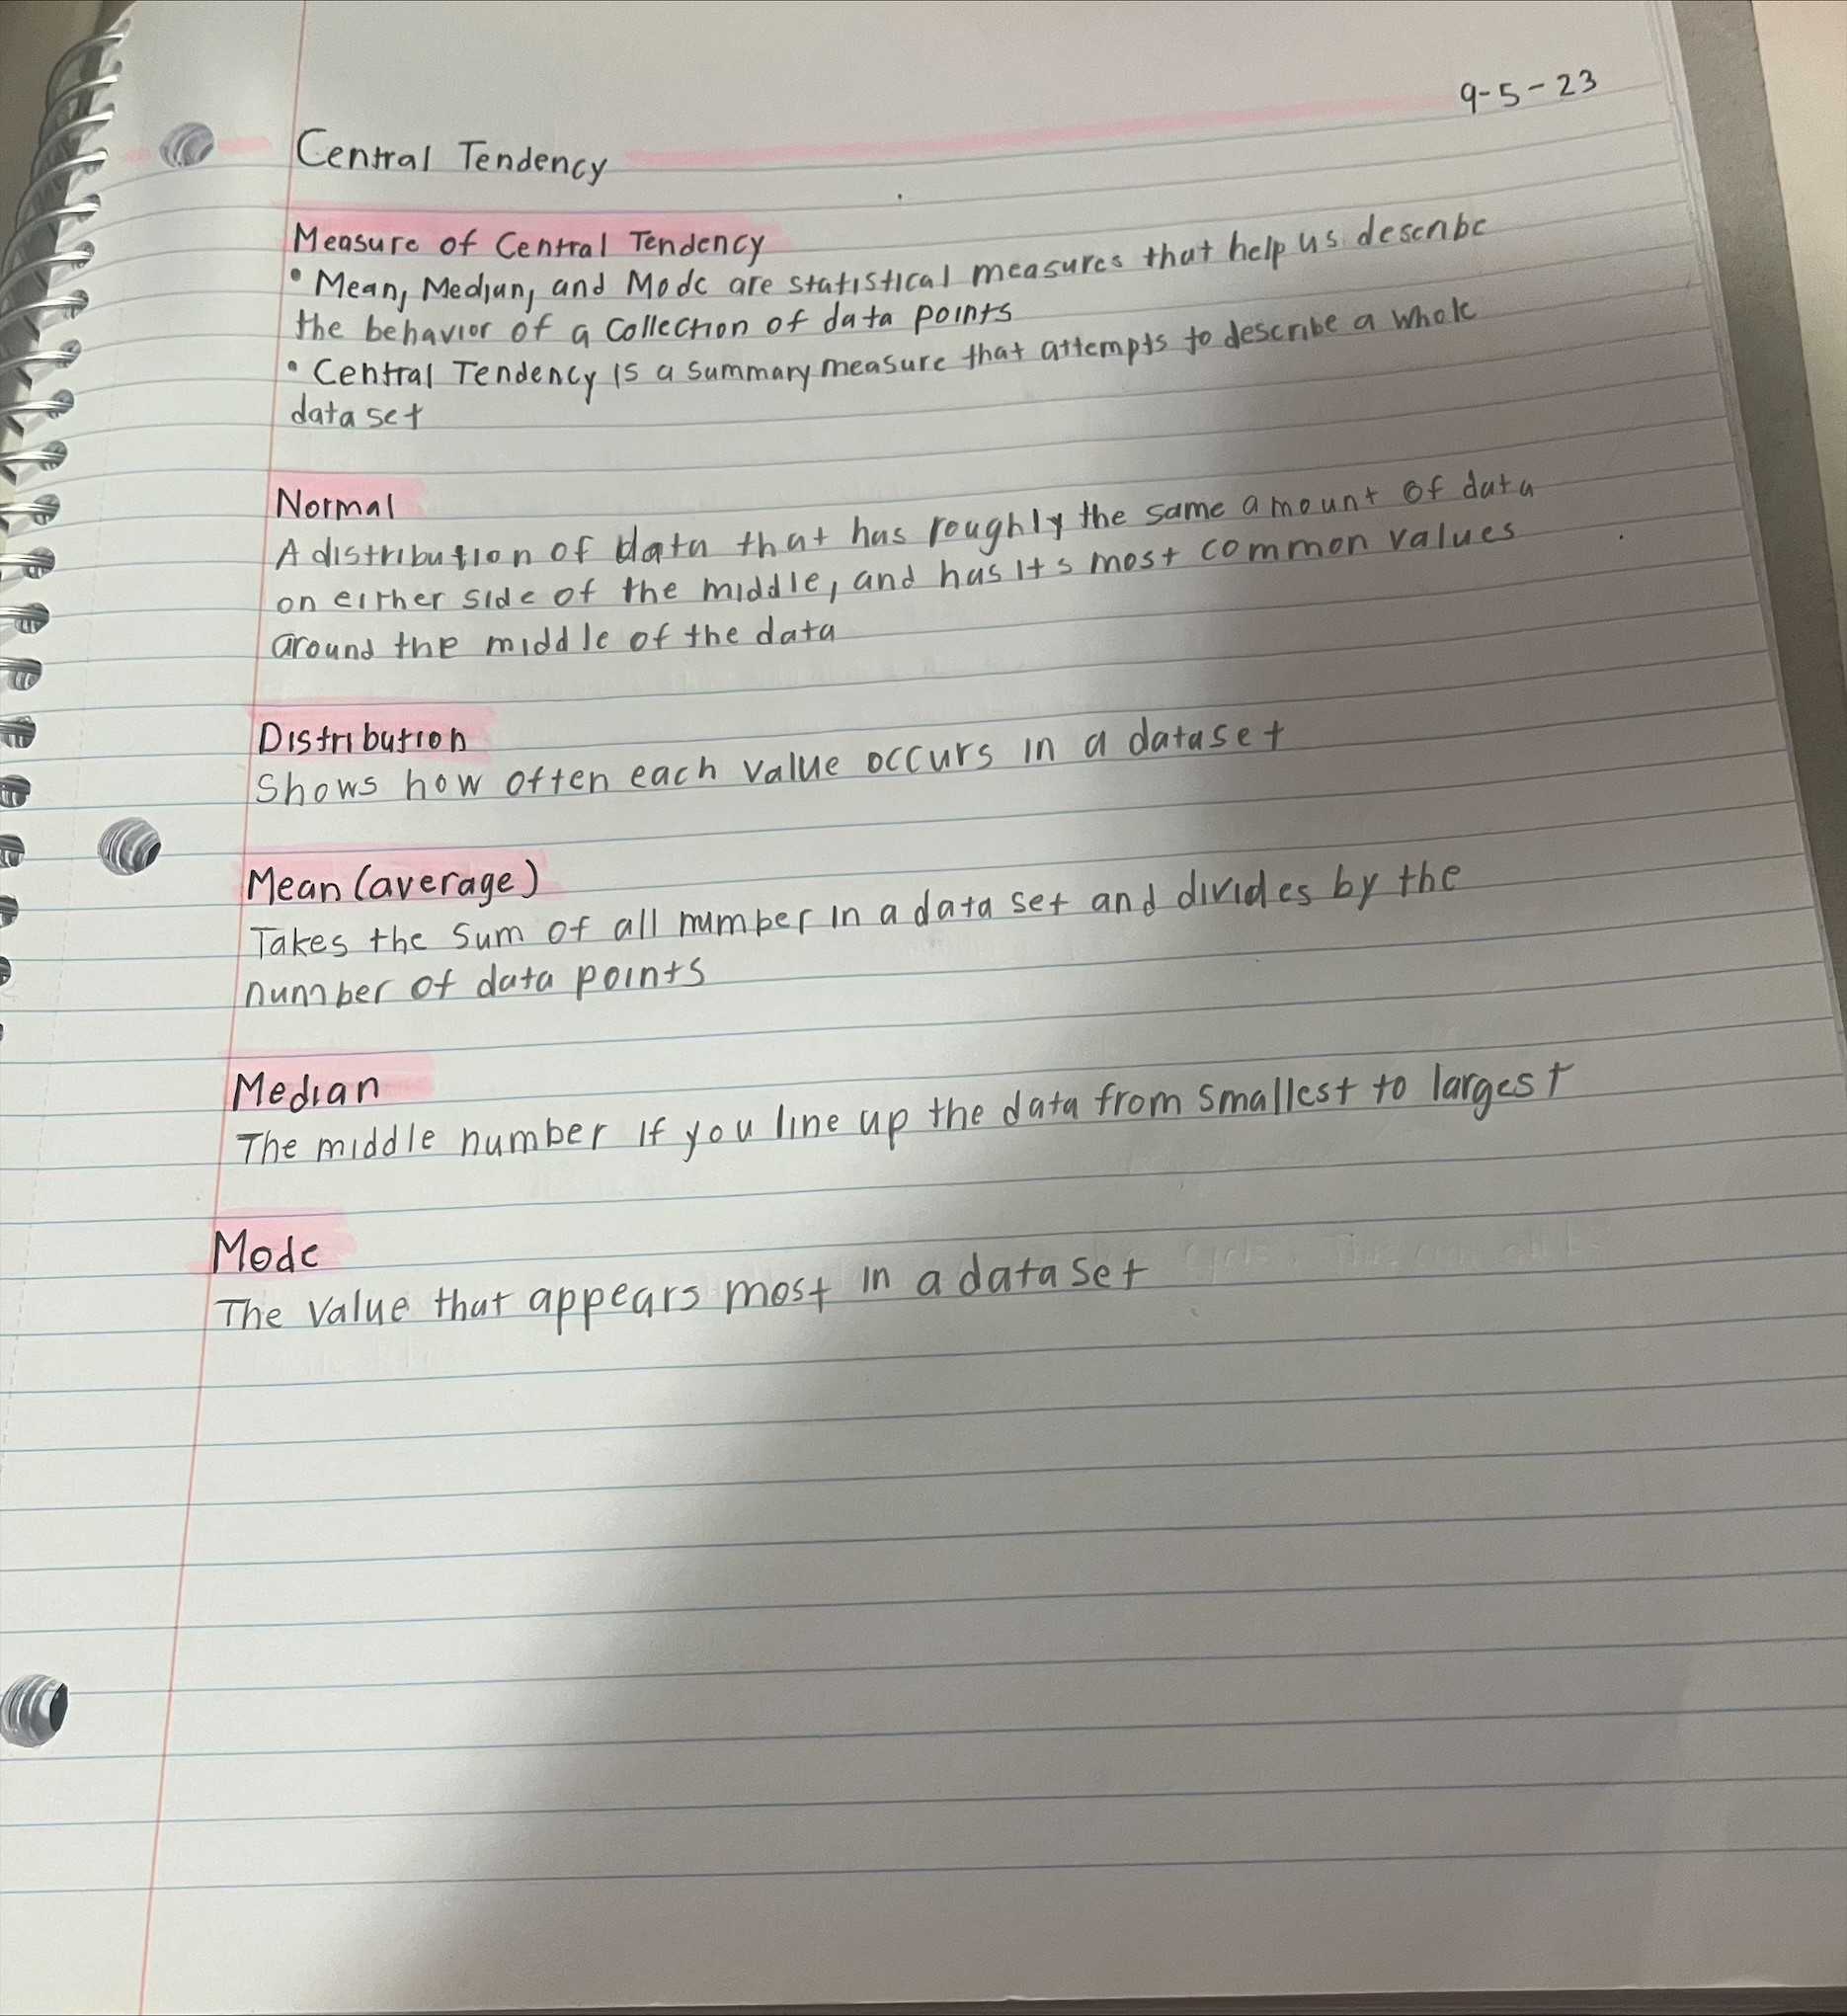 9-5-23
Central Tendency
Measure of Central Tendency
• Mean, Median, and Mode are statistical measures that help us describe
the behavior of a collection of data points
• Central Tendency is a summary measure that attempts to describe a whole
data set
Normal
A distribution of data that has roughly the same amount of data
on either side of the middle, and has its most common values
around the middle of the data
Distribution
Shows how often each value occurs in a dataset
Mean (average)
Takes the sum of all number in a data set and divides by the
number of data points
Median
The middle number if you line up the data from smallest to largest
Mode
The value that appears most in a data set